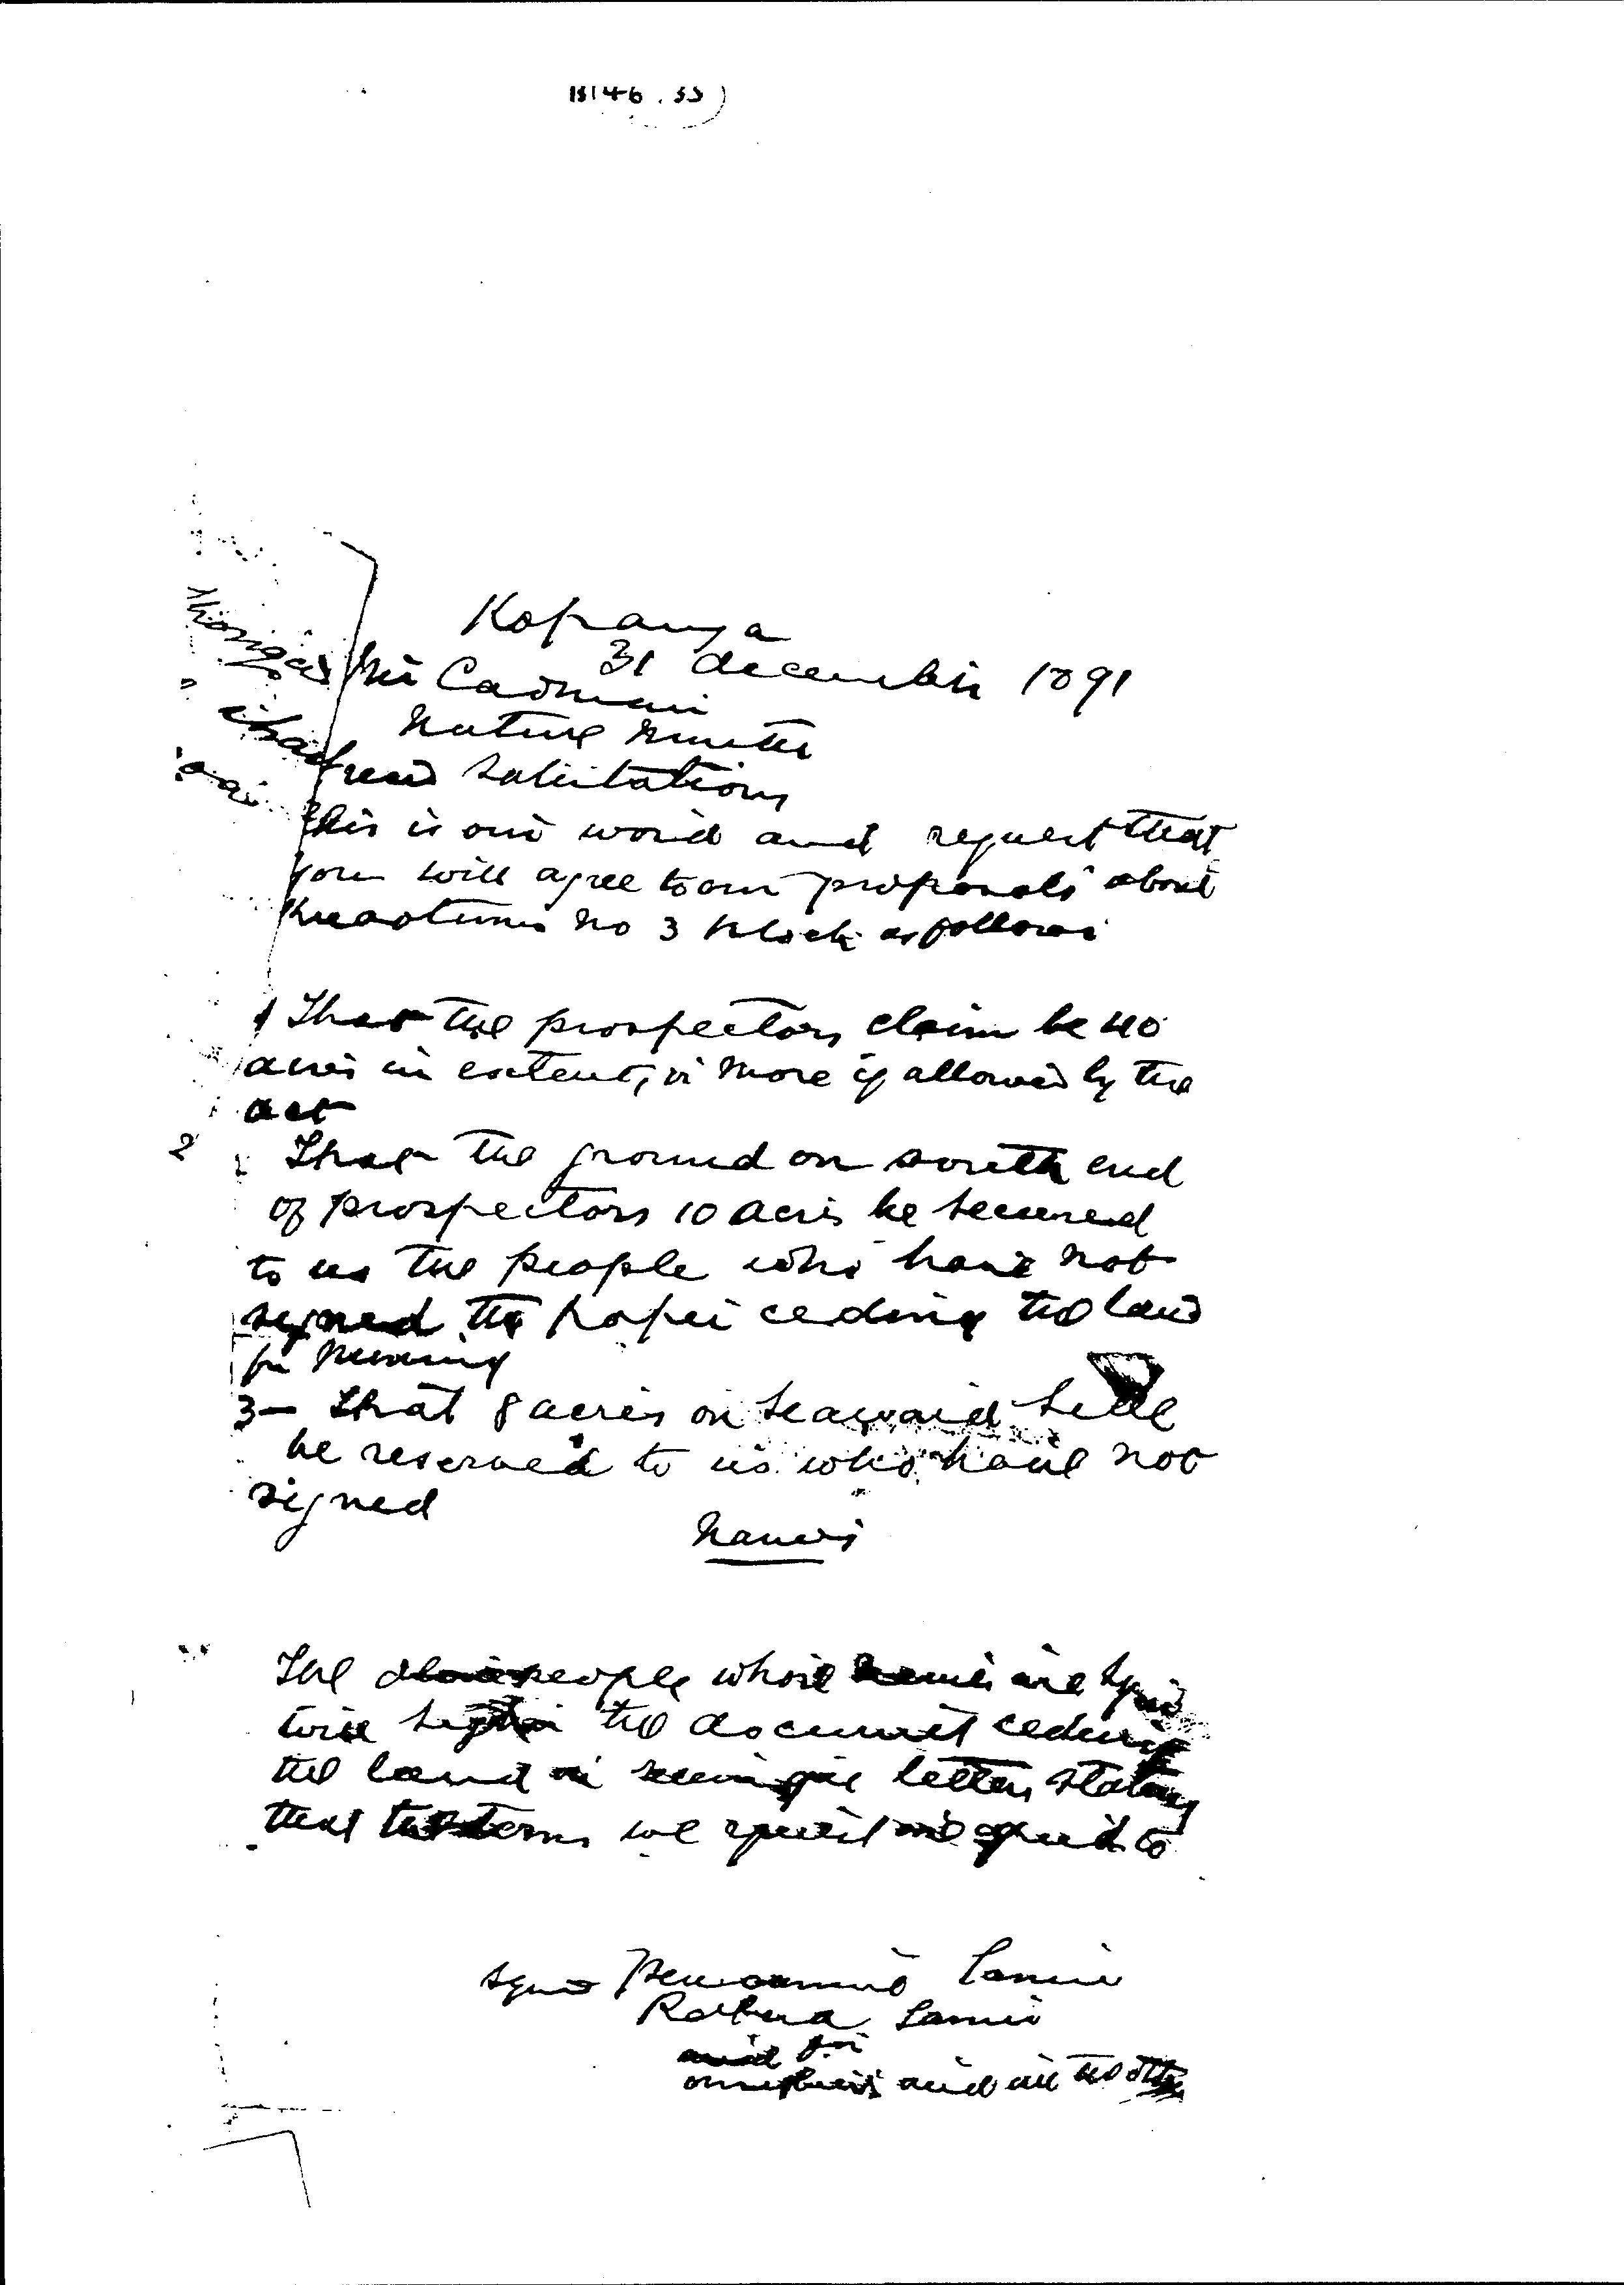 Kopanga
31 december 1891
Mr Cadman
Native Minister
friend Salutations
This is our word and request that
you will agree to our proposals about
No 3 Block as follows
1 That the prospectors claim be 40
acres in extent, or more if allowed by the
act
2 That the ground on south end
of prospectors 10 acres be secured
to us the people who have not
signed the paper ceding the land
for Mining
3 — that 8 acres on seaward side
be reserved to us who have not
signed
Names
The people whose names are
will the document ceding
the land letters stating
that the terms we agreed to
signed
and for
ourselves and all the others